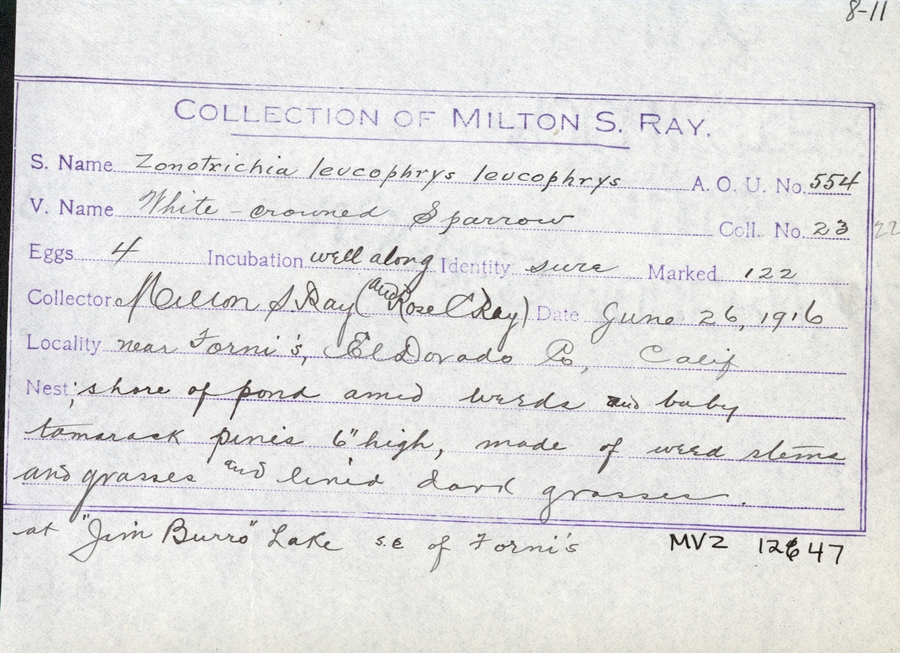 8-11
COLLECTION OF MILTON S. RAY.
S. Name Zonotrichia leucophrys leucophrys A. O. U. No. 554
V. Name White-crowned Sparrow Coll. No. 23 22
Eggs 4 Incubation well along Identity sure Marked 122
Collector Milton S. Ray (and Rose C Ray) Date June 26, 1916
Locality near Forni's, El Dorado Co, Calif
Nest; shore of pond amid weeds and baby
tamarack pines 6" high, made of weed stems
and grasses and lined dark grasses.
at "Jim Burro" Lake s.e of Forni's MVZ 12647